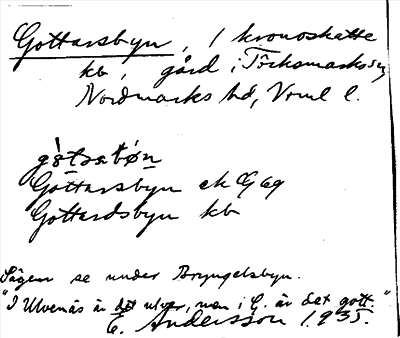 Gottarsbyn, 1 kronoskatte
kb, gård i Töcksmarks sn
Nordmarks hd, Vrml l.
gòtsabǿn
Gottarsbyn ek G 69
Gottardsbyn kb
Sägen se under Bryngelsbyn.
"I Ulvenäs är det ulver, men i G. är det gott."
E. Andersson 1935.